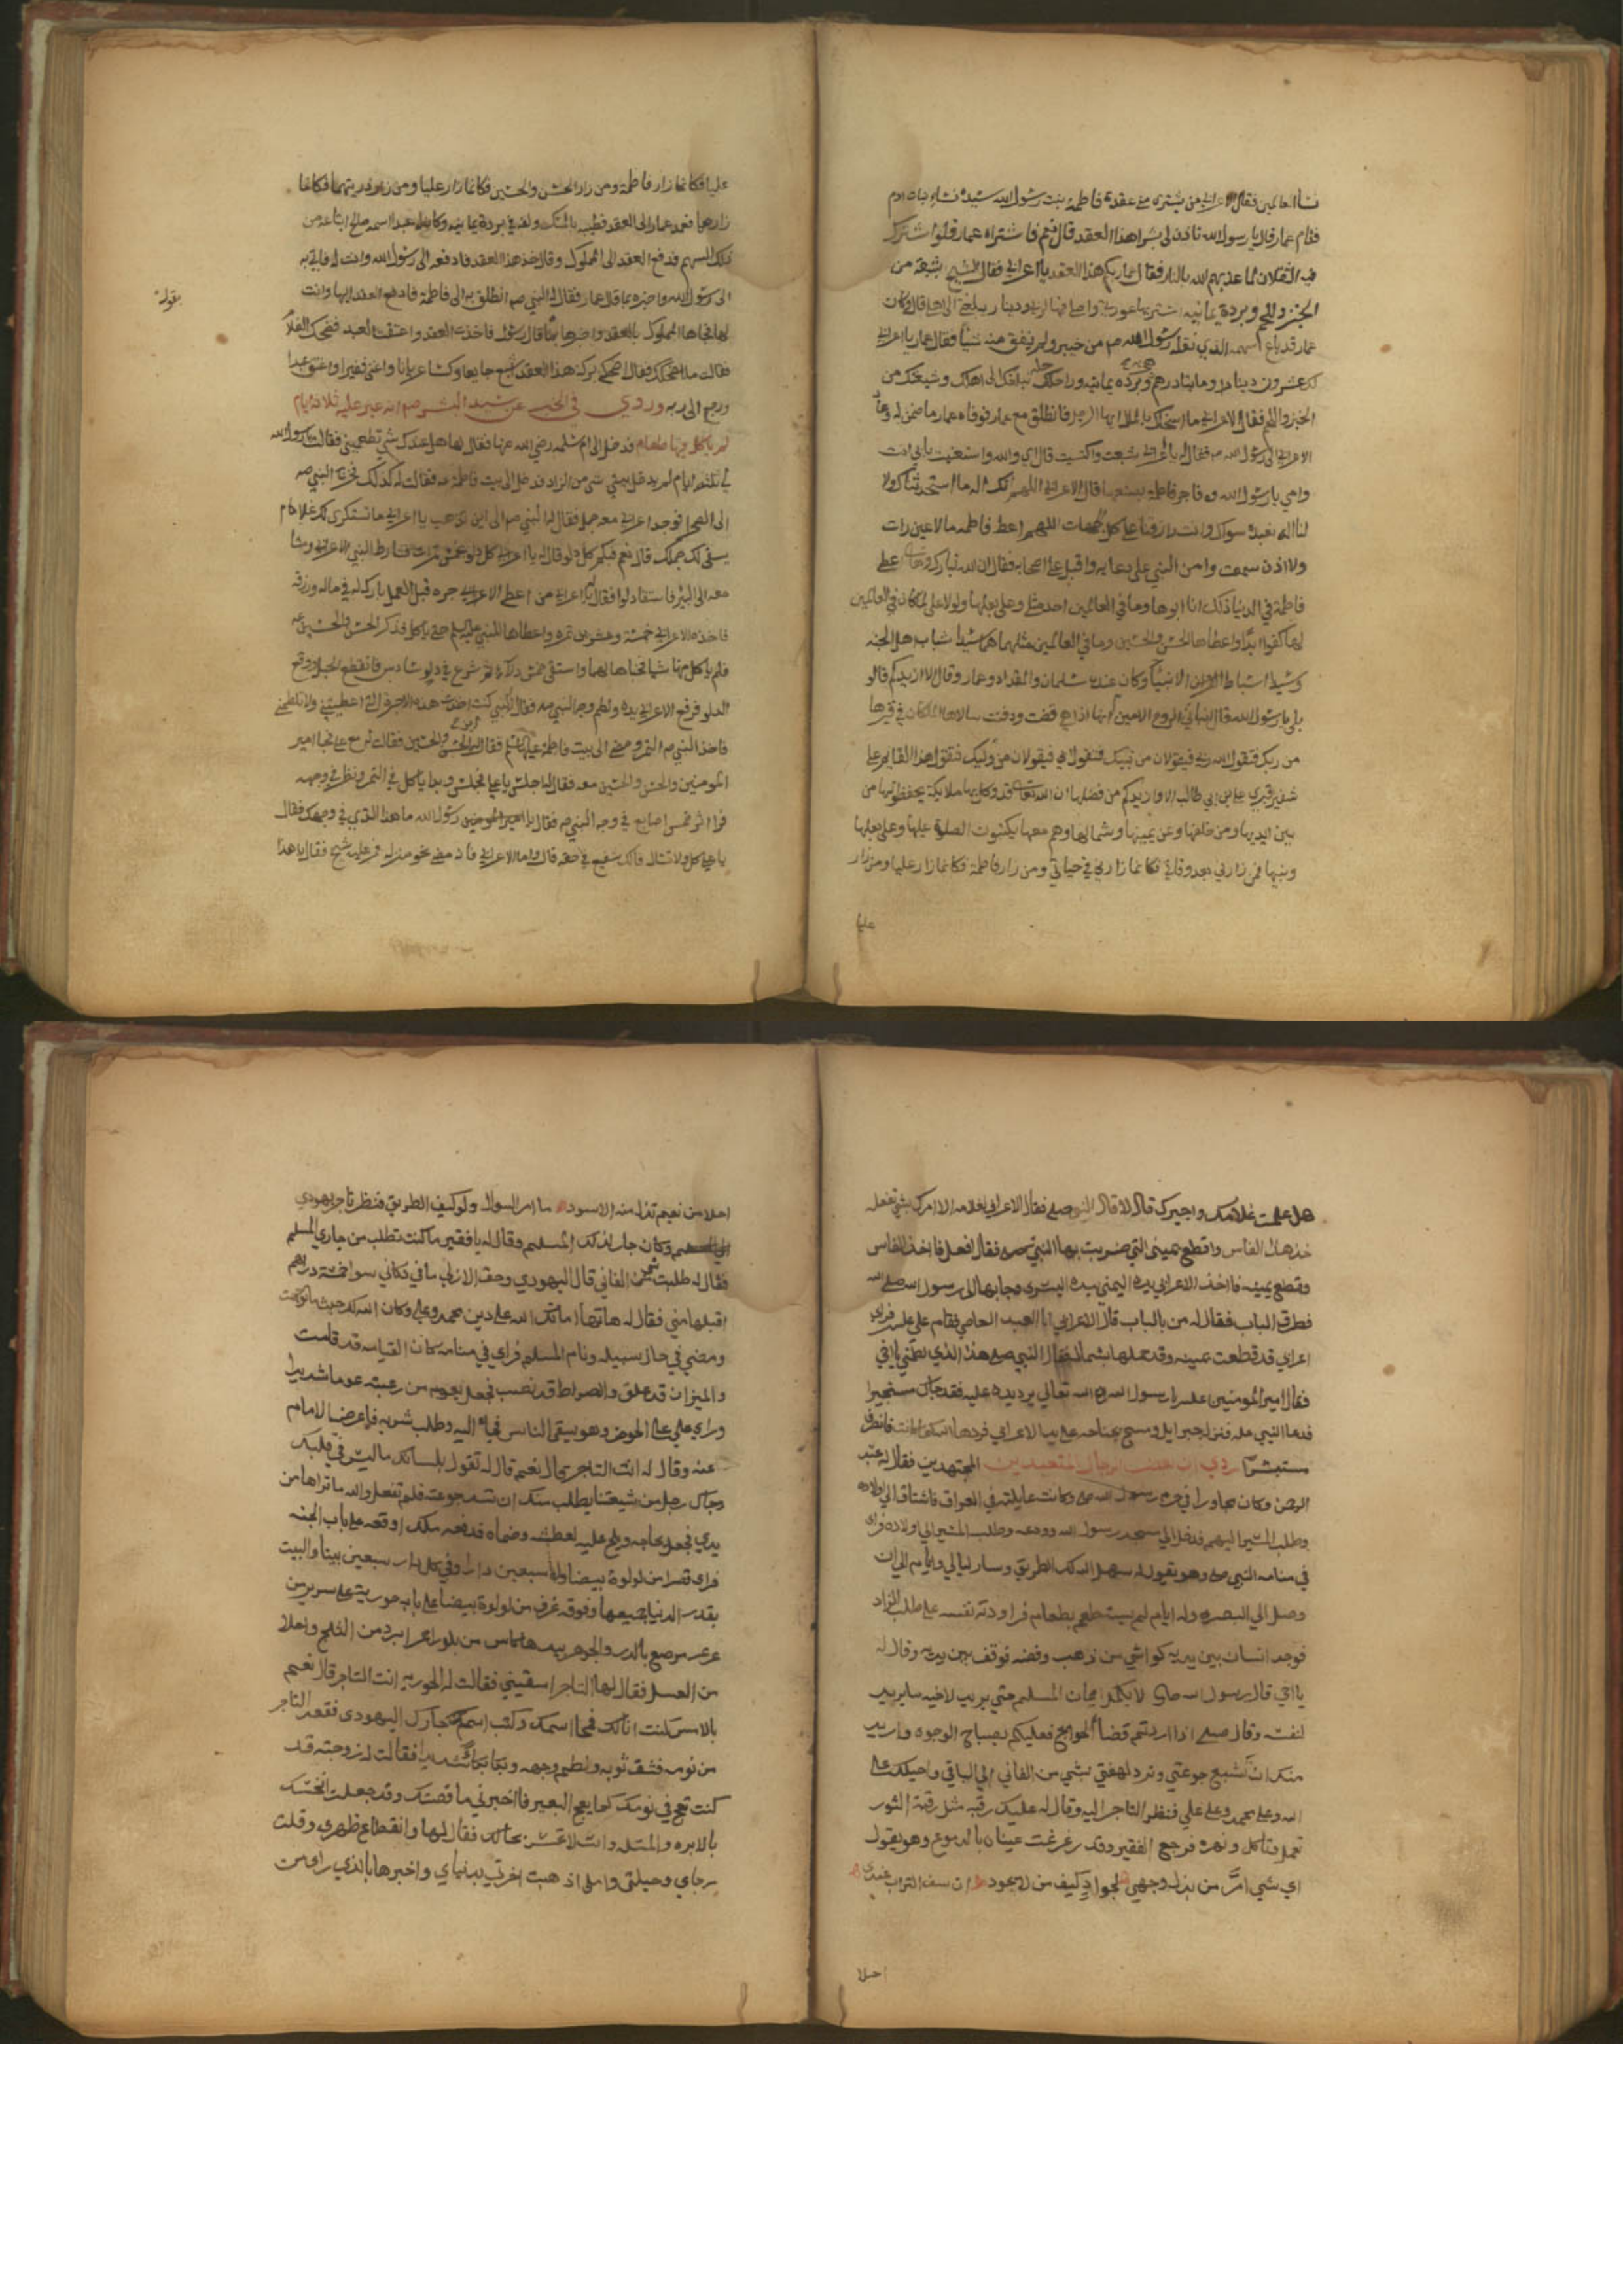 نسا العالمين فقال الاعرابي من يشتري مني عقد فاطمة بنت رسول الله سيدة نساء بنات ادم
فقام عمار وقال يا رسول الله تاذن لي بشرا هذا العقد قال نعم فاشتراه عمار فلو اشترك
فيه الثقلان لما عذبهم الله بالنار فقال عمار بكم هذا العقد يا اعرابي فقال الشيخ بشبعة من
الخبز واللحم وبردة يمانيه استر بها عورتي واصلي فيها لربي ودينار يبلغني الى اهلي قال وكان
عمار قد باع سهمه الذي نفله رسول الله من خيبر ولم يبق منه شيأ فقال عمار يا اعرابي
لك عشرون دينارا ومايتا درهم وبردة يمانيه وراحلتي تبلغك الى اهلك وشبعك من
الخبز واللحم فقال الاعرابي ما اسخاك بالمال ايها الرجل فانطلق مع عمار فوفاه عمار ما ضمن له وعاد
الاعرابي الى رسول الله ص فقال له يا اعرابي شبعت واكتسيت قال اي والله واستغنيت بابي انت
وامي يا رسول الله ص فاجز فاطمة بصنيعها قال الاعرابي اللهم انك اله ما استحدثناك ولا
لنا اله نعبده سواك وانت رازقنا على كل الجهات اللهم اعط فاطمه ما لا عين رات
ولا اذن سمعت وامن النبي على دعايه واقبل على اصحابه فقال ان الله تبارك وتعالى اعطى
فاطمة في الدنيا ذلك انا ابوها وما في العالمين احد مثلي وعلي بعلها ولولا علي لما كان في العالمين
لها كفوا ابدا واعطاها الحسن والحسين وما في العالمين مثلهما هم سيدا شباب اهل الجنه
وسيدا اسباط الانبيا وكان عنده سلمان والمقداد وعمار وقال الا ازيدكم قالوا
بلى يا رسول الله قال اتاني الروح الامين انها اذا هي قضت ودفنت سالاها الملكان في قبرها
من ربك فتقول الله ربي فيقولان من نبيك فتقول ابي فيقولان من وليك فتقول هذا القايم على
شفير قبري علي بن ابي طالب الا وازيدكم من فضلها ان الله تعالى قد وكل بها ملايكة يحفظونها من
بين ايديها ومن خلفها وعن يمينها وشمالها وهم معها يكثرون الصلوة عليها وعلى بعلها
وبنيها فمن زارني بعد وفاتي فكانما زارني في حياتي ومن زار فاطمة فكانما زار عليا ومن زار
عليا
عليا فكانما زار فاطمة ومن زار الحسن والحسين فكانما زار عليا ومن زار ذريتهما فكانما
زارهما فعمد عمار الى العقد فطيبه بالمسك ولفه في بردة يمانيه وكان له عبد اسمه ابتاعه من
ذلك السهم فدفع العقد الى المملوك وقال خذ هذا العقد فادفعه الى رسول الله وانت له فاتى به
الى رسول الله واخبره بما قال عمار فقال له النبي ص انطلق به الى فاطمة فادفع العقد اليها وانت
بقوله
لها فجاها المملوك بالعقد واخبرها بما قال رسول فاخذت العقد واعتقت العبد فضحك الغلام
فقالت ما اضحكك فقال اضحكني بركة هذا العقد شبع جايعا وكسا عريانا واغنى فقيرا واعتق عبدا
ورجع الى ربه وروي في الخبر عن سيد البشر صم انه عبر عليه ثلاثة ايام
لم ياكل فيها طعام فدخل الى ام سلمه رضي الله عنها فقال لها هل عندك شي تطعميني فقالت يا رسول الله
لي ثلثة ايام لم يدخل بيتي شي من الزاد فدخل الى بيت فاطمة فقالت له كذلك فخرج النبي ص
الى الصحرا فوجد اعرابي معه جمل فقال له النبي صم الى اين تذهب يا اعرابي ما تستكري لك غلاما
يسقي لك جملك قال نعم فبكم كل دلو قال له يا اعرابي كل دلو خمس تمرات فشارط النبي الاعرابي ومشا
معه الى البير فاستقا دلوا فقال يا اعرابي من اعطى الاجير اجره قبل العمل بارك له في ماله ورزقه
فاخذ الاعرابي خمسة وعشرين تمره واعطاها للنبي عليه السلم حتى ياكل فذكر الحسن والحسين
فلم ياكل منها شيا فخباها لهما واستقى خمس دلاء ثم شرع في دلو سادس فانقطع الحبل ووقع
الدلو فرفع الاعرابي يده ولطم وجه النبي ص فقال له النبي كنت اخذت هذه الاجرة التي اعطيتني ولا تلطمني
فاخذ النبي ص التمر ومضى الى بيت فاطمة فقال اين الحسن والحسين فقالت مع علي فجا امير
المومنين والحسن والحسين معه فقال له اجلس يا علي فجلس وبدا ياكل في التمر ونظر في وجهه
فراى اثر خمس اصابع في وجه النبي ص فقال يا رسول الله ما هذا الذي في وجهك فقال
يا علي كل ولا تسال فانك شفيع في حقه قال واما الاعرابي فانه مضى نحو منزله فمر عليه شيخ فقال يا هذا
هل علمت غلامك واجيرك قال لا قال النبي صلى فقال الاعرابي لغلامه الا امرك بشي تفعله
خذ هذه الفاس واقطع يميني التي ضربت بها النبي ص فقال افعل فاخذ الفاس
وقطع يمينه فاخذ الاعرابي يده اليمنى بيده اليسرى وجا بها الى رسول الله صلى الله
فطرق الباب فقال له من بالباب قال الاعرابي انا العبد العاصي فقام علي فراى
اعرابي قد قطعت يمينه وقد حملها بشماله فقال النبي ص هذا الذي لطمني يا اخي
فقال امير المومنين يا رسول الله ادع الله تعالى يرد يده عليه فقد جاك مستجيرا
فدعا النبي فنزل جبرايل ومسح بجناحه على يد الاعرابي فردها الله كما كانت فانصرف
مستبشرا روي ان بعض الرجال المتعبدين المجتهدين فقال له عبد
الرحمن وكان مجاورا في حرم رسول الله ص وكانت عايلته في العراق فاشتاق الى اولاده
وطلب المسير اليهم فدخل الى مسجد رسول الله وودعه وطلب المسير الى اولاده فراى
في منامه النبي ص وهو يقول له سهل الله لك الطريق وسار ليالي وايام الى ان
وصل الى البصره وله ايام لم يبيت طعم بطعام فراودته نفسه على طلب الزاد
فوجد انسان بين يديه كواشي من ذهب وفضه فوقف بين يديه وقال له
يا اخي قال رسول الله صلى لا يكمل ايمان المسلم حتى يريد لاخيه ما يريد
لنفسه وقال صلى اذا اردتم قضا الحوايج فعليكم بصباح الوجوه واريد
منك ان تشبع جوعتي وترد لهفتي بشي من الفاني الى الباقي واحيلك على
الله وعلى محمد وعلى علي فنظر التاجر اليه وقال له عليك رقبه مثل رقبة الثور
تعمل وتاكل ونهره فرجع الفقير وقد رغرغت عيناه بالدموع وهو يقول
اي شي امر من بذل وجهي لجواد كيف من لا يجود ان سف التراب عندي
احلا
احلا من نعيم تناله منه الاسود ما امر السوال ولو كيف الطريق فنظر تاجر يهودي
وكان جار لذلك المسلم وقال له يا فقير ما كنت تطلب من جاري المسلم
فقال له طلبت الفاني قال اليهودي وحق الازلي ما في دكاني سوا خمسة دراهم
اقبلها مني فقال له هاتها اماتك الله على دين محمد وعلي وكان الله لك حيث ما توجهت
ومضى في حال سبيله ونام المسلم فراى في منامه كان القيامه قد قامت
والميزان قد علق والصراط قد نصب فجعل يعوم من رعبته عوما شديدا
وراى علي على الحوض وهو يسقي الناس فجا اليه وطلب شربه فاعرض الامام
عنه وقال له انت التاجر قال نعم قال له تقول بلسانك ما ليس في قلبك
وجاك رجل من شيعتنا يطلب منك ان تسد جوعته فلم تفعل والله ما تراها من
يدي فجعل يحاجه ويلح عليه لعطشه وضماه فدفعه ملك اوقعه على باب الجنه
فراى قصرا من لولوة بيضا وله سبعين دارا وفي كل دار سبعين بيتا والبيت
بقدر الدنيا جميعها وفوقه غرف من لولوة بيضا على بابه حورية على سرير من
عرعر مرصع بالدر والجوهر بيدها كاس من بلور ابرد من الثلج واحلا
من العسل فقال لها التاجر اسقيني فقالت له الحوريه انت التاجر قال نعم
بالامس كنت انا لك فمحا اسمك وكتب اسم جارك اليهودي فقعد التاجر
من نومه فشق ثوبه ولطم وجهه وبكا بكا شديدا فقالت له زوجته قد
كنت تعج في نومك كما يعج البعير فاخبرني ما قصتك وقد جعلت انخسك
بالابره والمتله وانت لا تحس بحالك فقال لها وانقطاع ظهري وقلت
رجاي وحيلتي واملي اذهبت اخرتي بدنياي واخبرها بالذي راى من